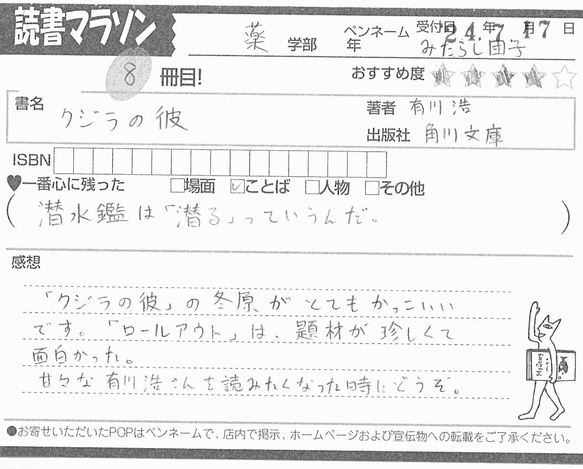 読書マラソン
薬 学部 年 ペンネーム みたらし団子
受付日 24.年7.月17日
8 冊目!
おすすめ度
書名 クジラの彼
著者 有川 浩
出版社 角川文庫
ISBN
♥一番心に残った □場面 ☑ことば □人物 □その他
(潜水鑑は「潜る」っていうんだ。)
感想
「クジラの彼」の冬原がとてもかっこいい
です。「ロールアウト」は、題材が珍しくて
面白かった。
甘々な有川浩さんを読みたくなった時にどうぞ。
●お寄せいただいたPOPはペンネームで、店内で掲示、ホームページおよび宣伝物への転載をご了承ください。